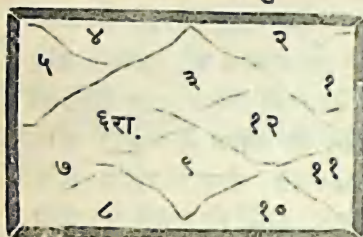 ४ २
५ ३ १
६रा. १२
७ ९ ११
८ १०